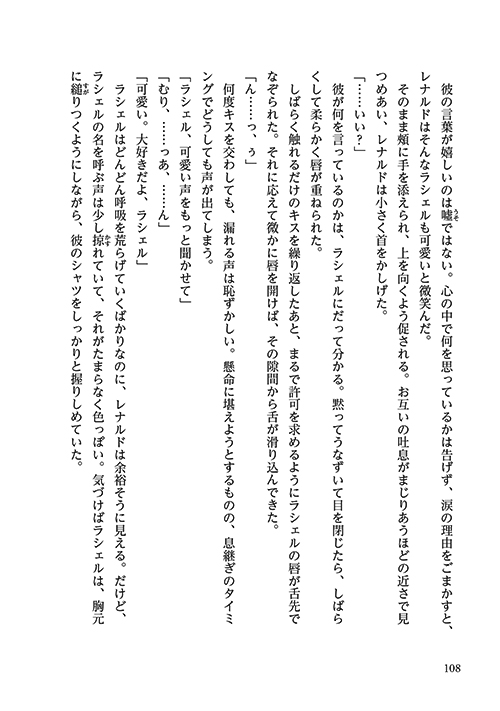 彼の言葉が嬉しいのは嘘ではない。心の中で何を思っているかは告げず、涙の理由をごまかすと、
レナルドはそんなラシェルも可愛いと微笑んだ。
そのまま頬に手を添えられ、上を向くよう促される。お互いの吐息がまじりあうほどの近さで見
つめあい、レナルドは小さく首をかしげた。
「……いい？」
彼が何を言っているのかは、ラシェルにだって分かる。黙ってうなずいて目を閉じたら、しばら
くして柔らかく唇が重ねられた。
しばらく触れるだけのキスを繰り返したあと、まるで許可を求めるようにラシェルの唇が舌先で
なぞられた。それに応えて微かに唇を開ければ、その隙間から舌が滑り込んできた。
「ん……っ、ぅ」
何度キスを交わしても、漏れる声は恥ずかしい。懸命に堪えようとするものの、息継ぎのタイミ
ングでどうしても声が出てしまう。
「ラシェル、可愛い声をもっと聞かせて」
「むり、……っあ、……ん」
「可愛い。大好きだよ、ラシェル」
ラシェルはどんどん呼吸を荒らげていくばかりなのに、レナルドは余裕そうに見える。だけど、
ラシェルの名を呼ぶ声は少し掠れていて、それがたまらなく色っぽい。気づけばラシェルは、胸元
に縋りつくようにしながら、彼のシャツをしっかりと握りしめていた。
108